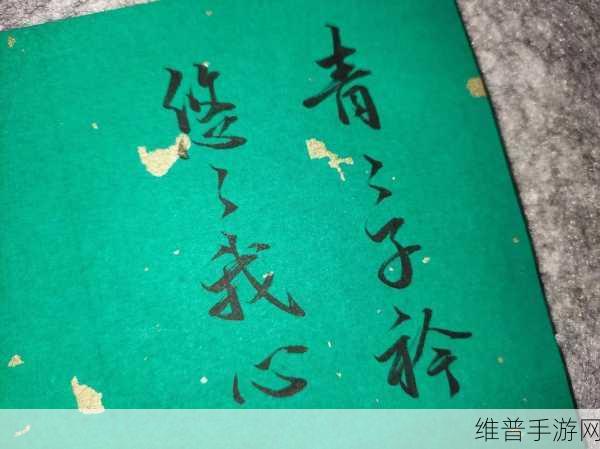 青々子衿
悠々我心
维普手游网